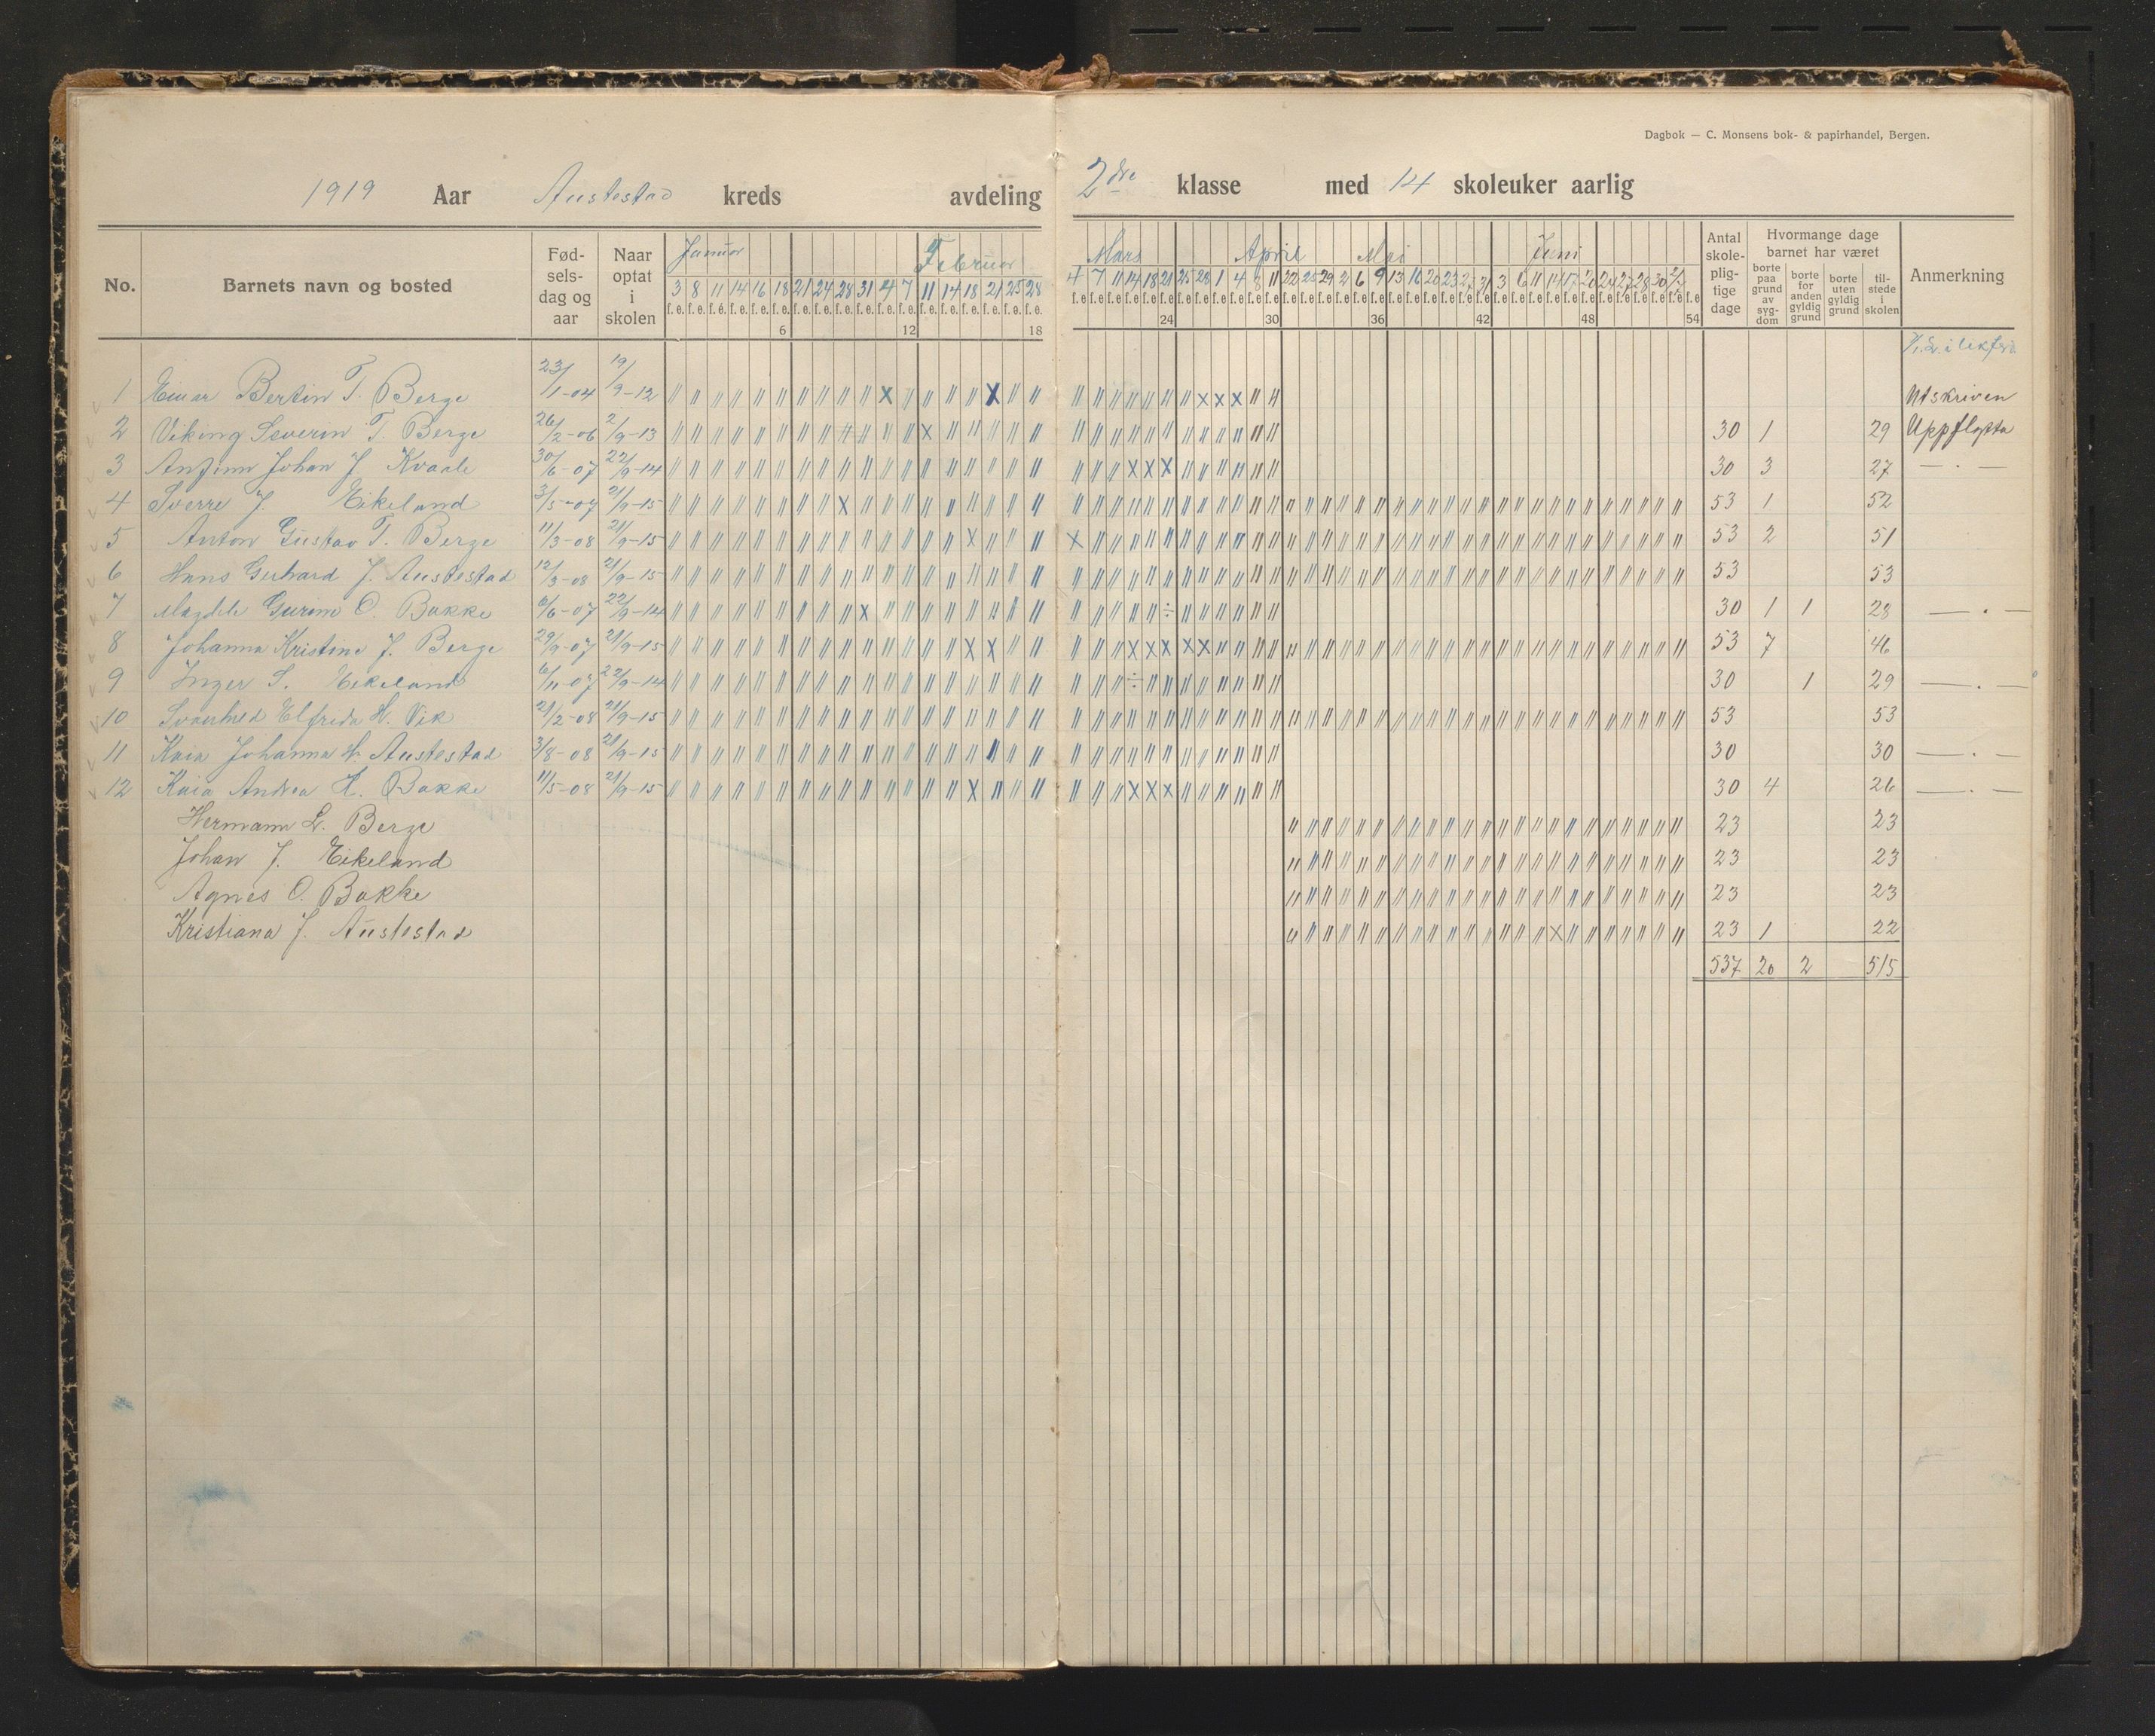 Dagbok — C. Monsens bok- & papirhandel, Bergen.
1919 Aar Austestad kreds avdeling 2dre klasse med 14 skoleuker aarlig
No. Barnets navn og bosted Fød-sels-dag og aar Naar optat i skolen Januar Februar Mars April Mai Juni Antal skole-plig-tige dage Hvormange dage barnet har været Anmerkning
borte paa grund av syg-dom borte for anden gyldig grund borte uten gyldig grund til-stede i skolen
3 8 11 14 16 18 21 24 28 31 4 7 11 14 18 21 25 28 4 7 11 14 18 21 25 28 1 4 8 11 22 25 29 2 6 9 13 16 20 23 27 31 3 6 11 14 17 20 24 27 28 30 2/7
f. e. f. e. f. e. f. e. f. e. f. e. f. e. f. e. f. e. f. e. f. e. f. e. f. e. f. e. f. e. f. e. f. e. f. e.
6 12 18 24 30 36 42 48 54
1 Einar Bertin T. Berge 23/1-04 19/9-12 Utskriven
2 Viking Severin T. Berge 26/2-06 2/9-13 30 1 29 Uppflytta
3 Anfinn Johan J. Kvaale 30/6-07 22/9-14 30 3 27 — . —
4 Sverre J. Eikeland 3/5-07 21/9-15 53 1 52
5 Anton Gustav T. Berge 11/3-08 21/9-15 53 2 51
6 Hans Gerhard J. Austestad 12/3-08 21/9-15 53 53
7 Magdele Gurine O. Bakke 9/6-07 22/9-14 30 1 1 28 — . —
8 Johanna Kristine J. Berge 29/9-07 21/9-15 53 7 46
9 Inger S. Eikeland 6/11-07 22/9-14 30 1 29 — . —
10 Svanhed Elfrida H. Vik 21/2-08 21/9-15 53 53
11 Kaia Johanna H. Austestad 3/8-08 21/9-15 30 30 — . —
12 Kaia Andrea H. Bakke 11/5-08 21/9-15 30 4 26 — . —
Hermann L. Berge 23 23
Johan J. Eikeland 23 23
Agnes O. Bakke 23 23
Kristiana J. Austestad 23 1 22
537 20 2 515